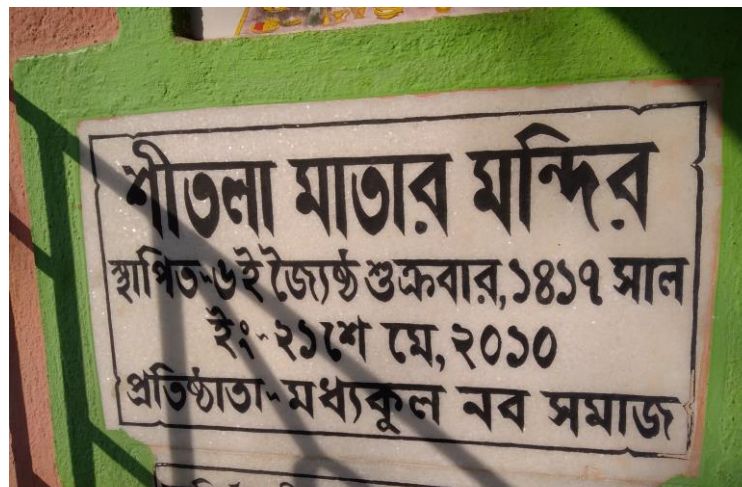 শীতলা মাতার মন্দির
স্থাপিত-৬ই জ্যৈষ্ঠ শুক্রবার,১৪১৭ সাল
ইং-২১শে মে,২০১০
প্রতিষ্ঠাতা-মধ্যকুল নব সমাজ